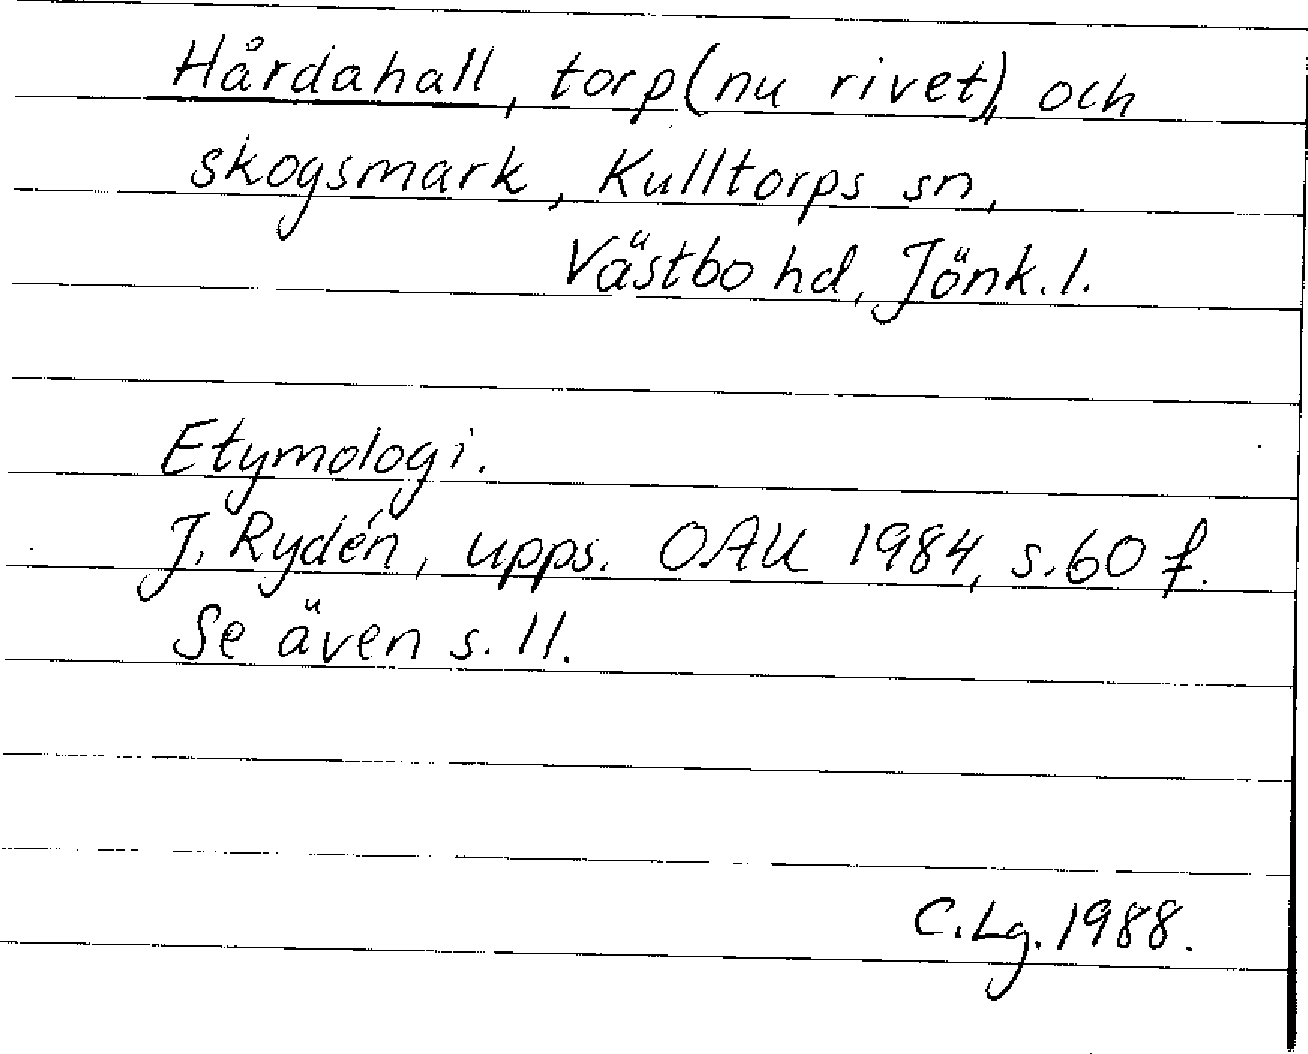 Hårdahall, torp (nu rivet), och
skogsmark, Kulltorps sn,
Västbo hd, Jönk. l.
Etymologi.
J. Rydén, upps. OAU 1984, s. 60 f.
Se även s. 11.
C. Lg. 1988.